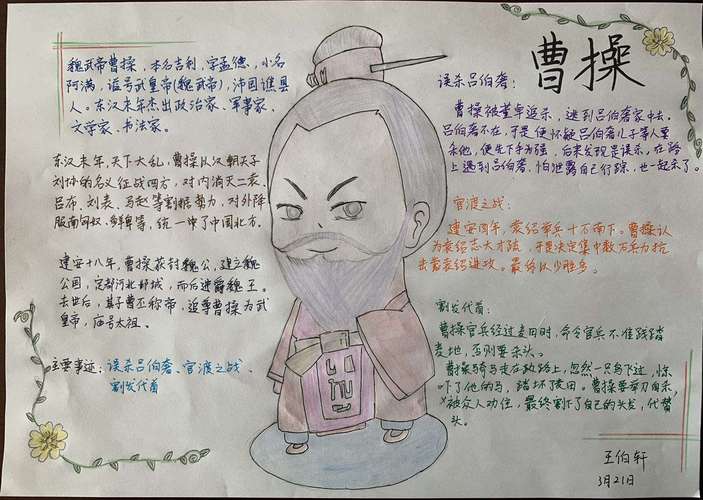 曹操
魏武帝曹操，本名吉利，字孟德，小名
阿满，谥号武皇帝(魏武帝)，沛国谯县
人。东汉末年杰出政治家、军事家、
文学家、书法家。
东汉末年，天下大乱，曹操以汉朝天子
刘协的名义征战四方，对内消灭二袁、
吕布、刘表、马超等割据势力，对外降
服南匈奴、鲜卑等，统一中了中国北方。
建安十八年，曹操获封魏公，建立魏
公国，定都河北邺城，而后进爵魏王。
去世后，其子曹丕称帝，追尊曹操为武
皇帝，庙号太祖。
主要事迹：误杀吕伯奢、官渡之战、
割发代首
误杀吕伯奢：
曹操被董卓追杀，逃到吕伯奢家中去。
吕伯奢不在，于是便怀疑吕伯奢儿子等人要
杀他，便先下手为强，后来发现是误杀，在路
上遇到吕伯奢，怕泄露自己行踪，也一起杀了。
官渡之战：
建安四年，袁绍率兵十万南下。曹操认
为袁绍志大才疏，于是决定集中数万兵力抗
击袁绍进攻。最终以少胜多。
割发代首：
曹操官兵经过麦田时，命令官兵不准践踏
麦地，否则要杀头。
曹操骑马走在路上，忽然一只鸟飞过，惊
吓了他的马，踏坏了麦田。曹操要举刀自杀，
被众人劝住，最终割下了自己的头发，代替
头。
王伯轩
3月21日